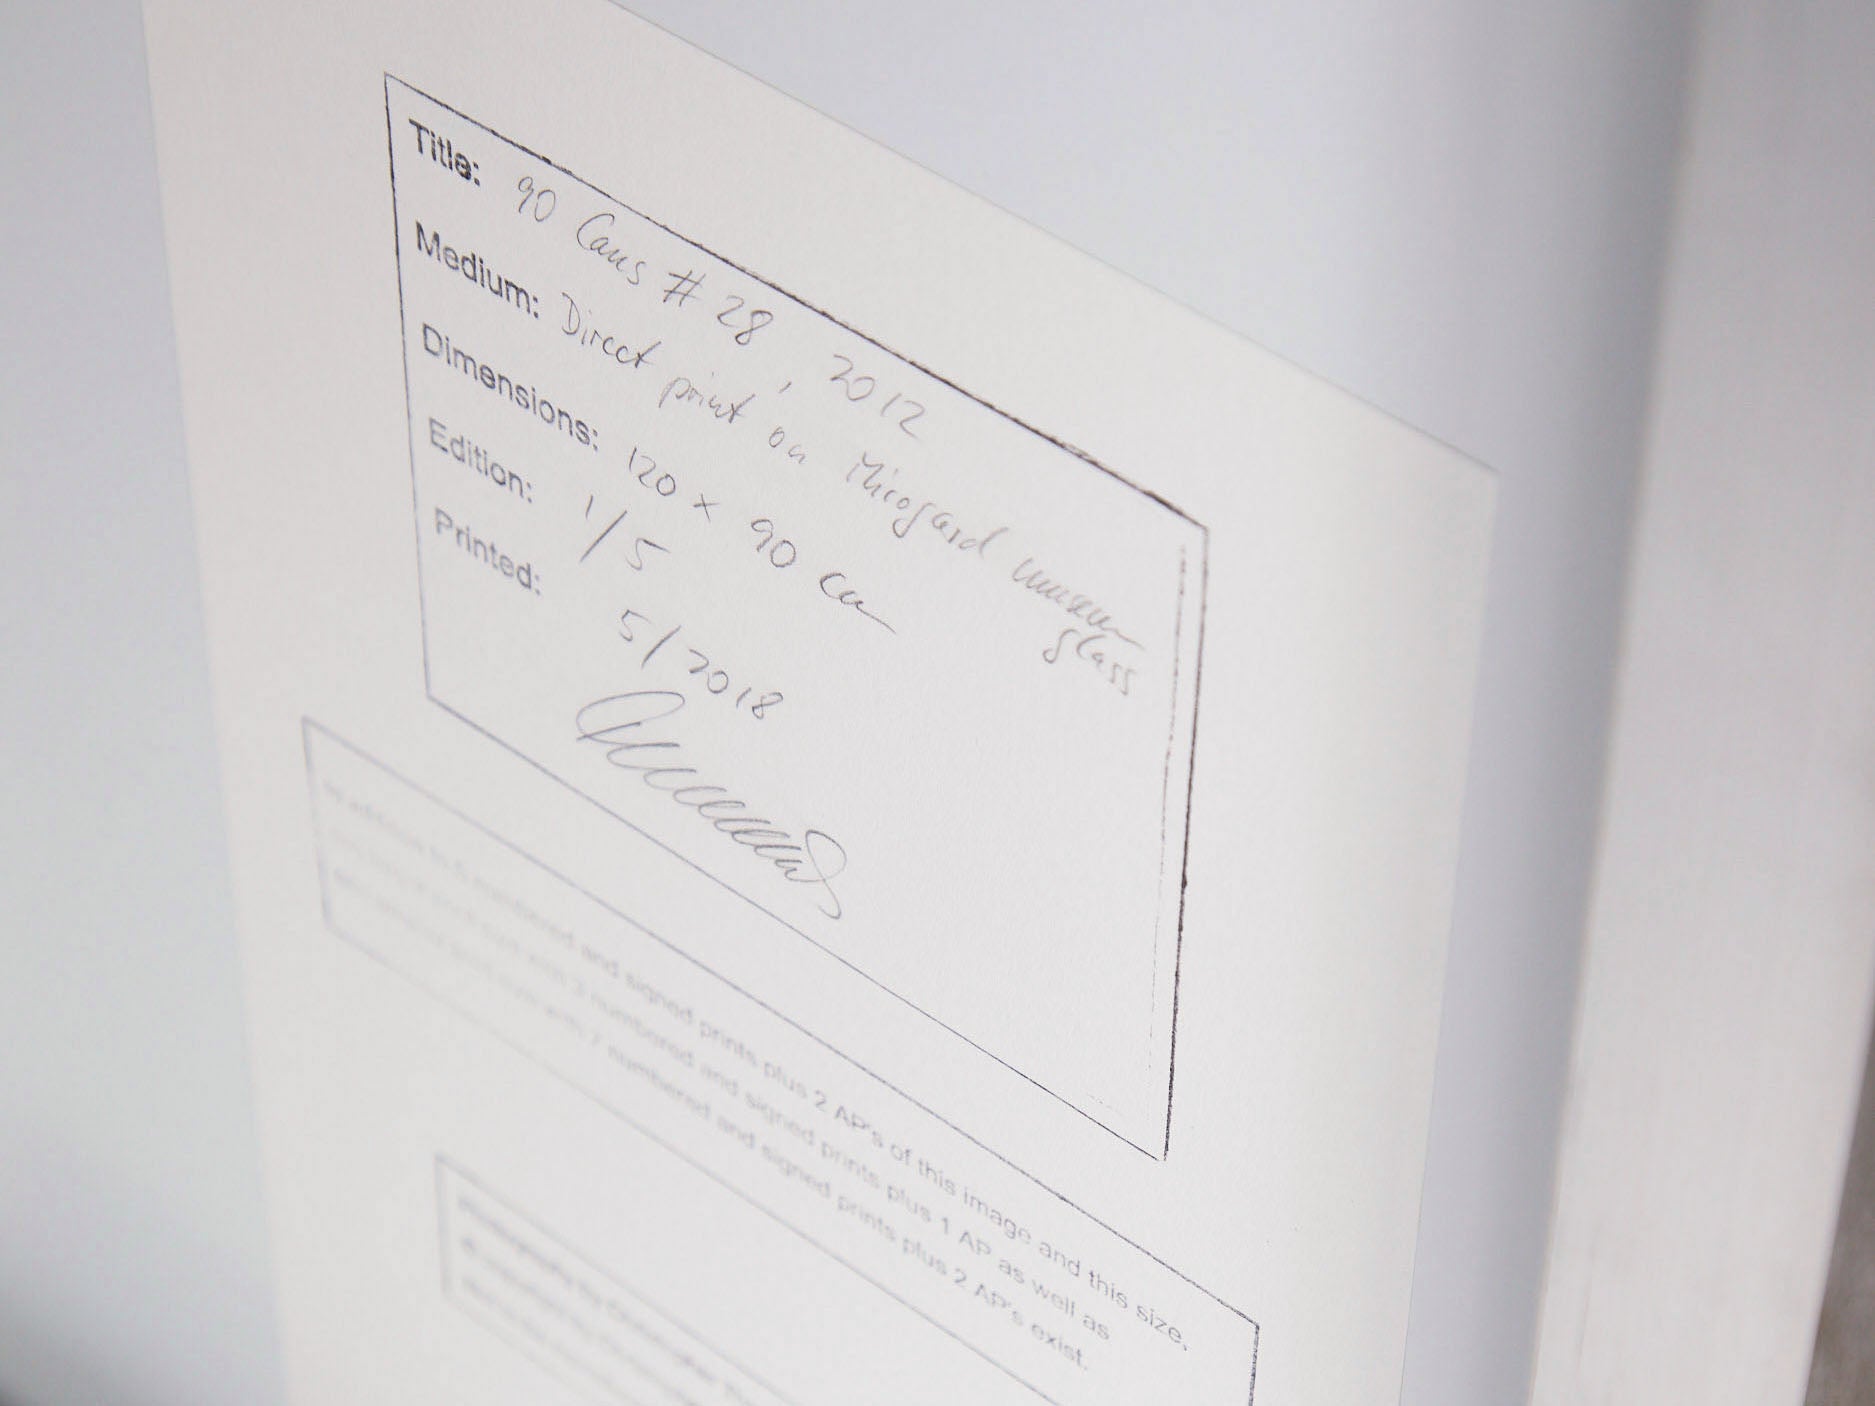 Title: 90 Cans # 28, 2012
Medium: Direct print on Mirogard museum
glass
Dimensions: 120 x 90 cm
Edition: 1/5
Printed: 5/2018
In addition to 5 numbered and signed prints plus 2 AP's of this image and this size,
with 3 numbered and signed prints plus 1 AP as well as
with 7 numbered and signed prints plus 2 AP's exist.